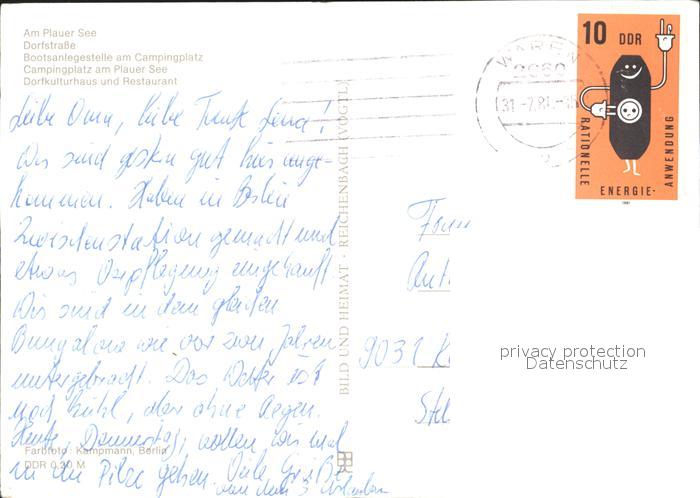 Am Plauer See
Dorfstraße
Bootsanlegestelle am Campingplatz
Campingplatz am Plauer See
Dorfkulturhaus und Restaurant
Liebe Oma, liebe Tante Lena!
Wir sind gestern gut hier ange-
kommen. Haben in Berlin
Zwischenstation gemacht und
etwas Verpflegung eingekauft.
Wir sind in dem gleichen
Bungalow wie vor zwei Jahren
untergebracht. Das Wetter ist
noch kühl, aber ohne Regen.
Heute, Donnerstag, wollen wir mal
in die Pilze gehen. Viele Grüße
von den 3 Urlaubern
Farbfoto: Kampmann, Berlin
DDR 0,20 M
BILD UND HEIMAT · REICHENBACH (VOGTL)
WAREN
2060
31.-7.81.-15
10 DDR
RATIONELLE
ENERGIE-
ANWENDUNG
1981
9031 K
privacy protection
Datenschutz